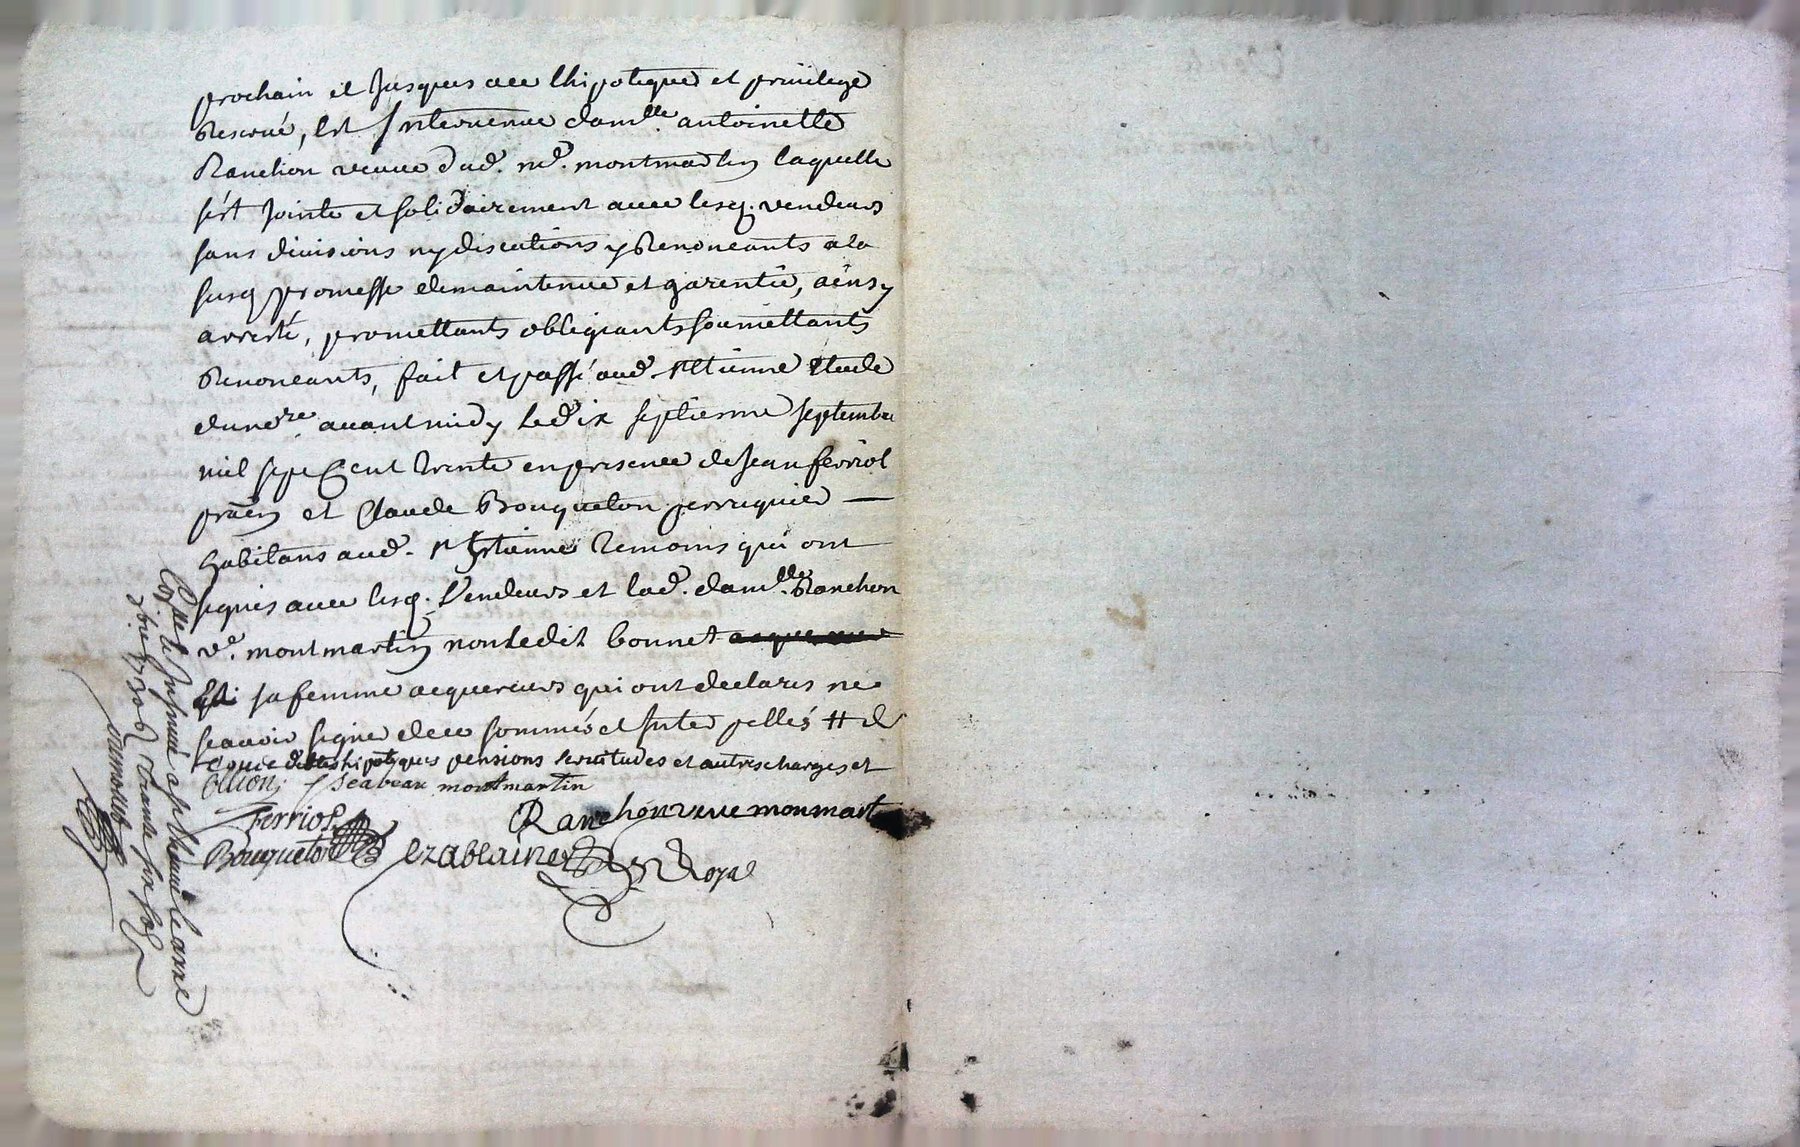 prochain et Jusques a ce lhipoteque et priuilege
Reserué, Est Interuenue damlle antoinette
Ranchon veuue dud. md. montmartin laquelle
sést Jointe et solidairement auec lesq. vendeurs
sans diuisions ny discutions y Renonceants a la
susd promesse de maintenue et garentie, ainsy
arresté, promettants obligeants soumettants
Renonceants, fait et passé aud. st Etienne Etude
du nore auant midy Le dix septieme septembre
mil sept Cent trente en presence de Jean ferriol
pratn et Claude Bouqueton perruquier
habitans aud. st Estienne temoins qui ont
signés auec lesq. Vendeurs et lad. damlle Ranchon
ve. montmartin non ledit bonnet
sa femme acquereurs qui ont declarés ne
scauoir signer de ce sommés et Interpellés # et
debtes hipoteques pensions seruitudes et autres charges et
montmartin
Ranchon veue monmart
Ferriol
Bouqueton
Royal
Con.lle & Insinué a st Etienne le
1730